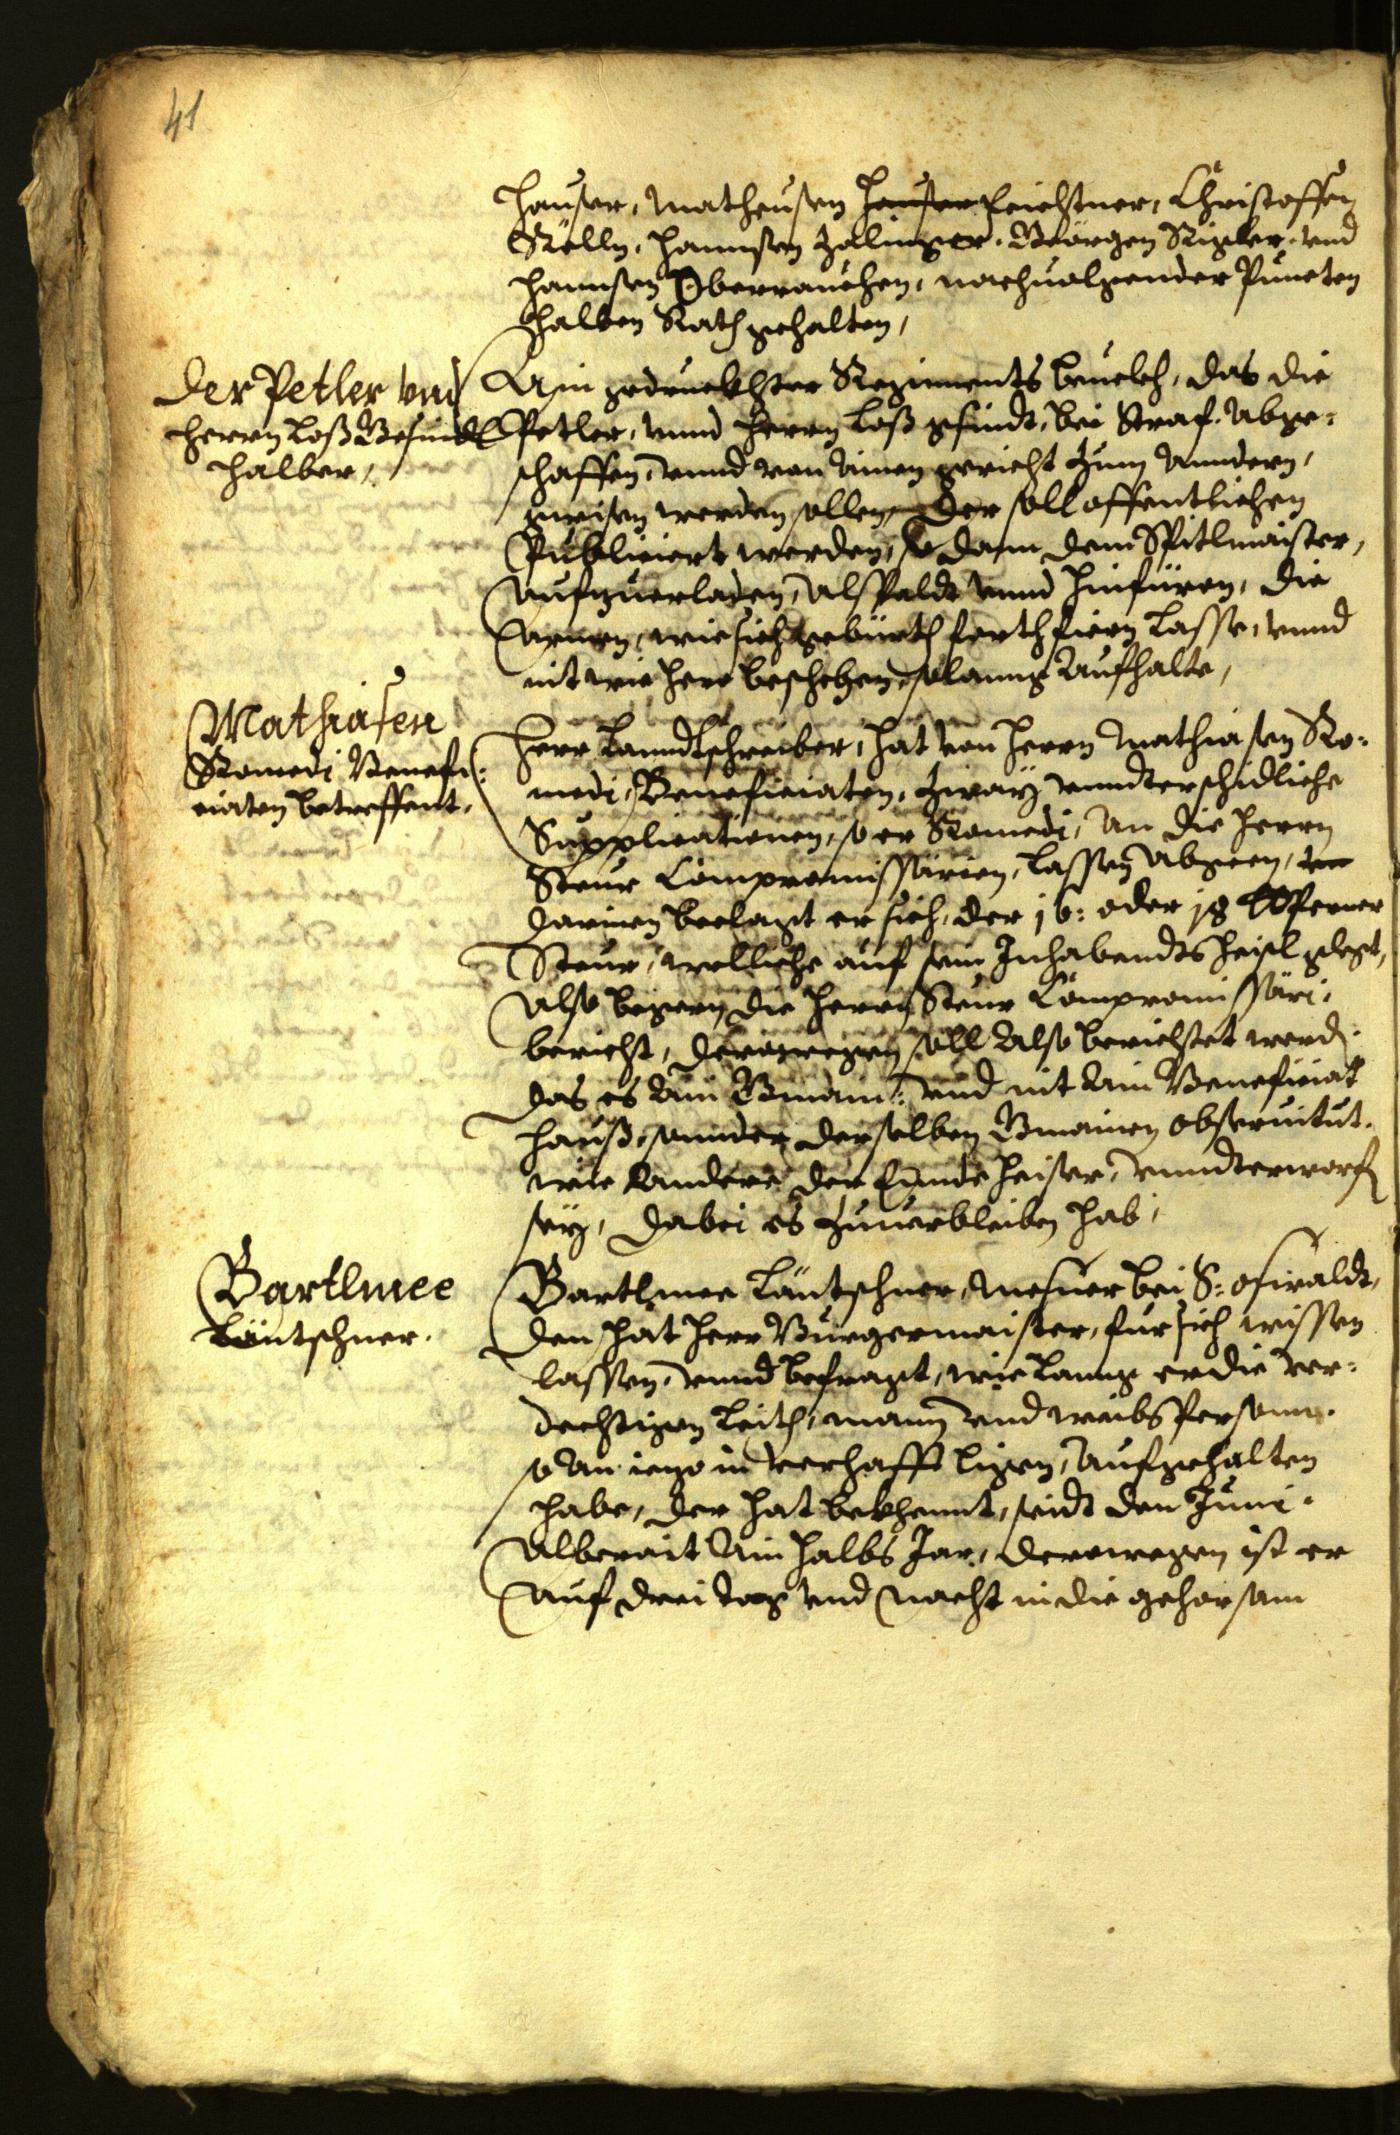 41
Hauser, Matheusen Hauser Feichtner, Christoffen
Kölln, Hannsen Zälinger, Geörgen Rigler, vnd
Hannsen Oberrauchen, nachuolgender Puncten
halben Rath gehalten,
Der Petler vnd
herrn loß Gesindl
halber,
Ain gedruckhter Regiments beuelch, das die
Petler, vnnd herrn loß gsindt, bei Straf abge-
schaffen, vnnd von ainen gericht zum anndern,
gwisen werden sollen, Der soll offentlichen
Publiciert werden, so dann dem Spitlmaister,
aufzuerladen, alspaldt vnnd hinfüron, die
armen, wie sich gebürth forthfiern lasse, vnnd
nit wie hero beschehen, solanng aufhalte,
Mathiasen
Romedi Benefi-
ciaten betreffent.
Herr Lanndtschreiber, hat von herrn Mathiasen Ro-
medi, Beneficiaten, zway vnndterschidliche
Supplicationen, so er Romedi, an die herrn
Steur Compromissärien, lassen abgeen,
darinen beclagt er sich, der 16: oder 18 Perner
Steur, welliche auf sein Inhabendts heisl glegt,
also begern die herrn Steur Compromissäri,
bericht, derowegen soll also berichtet werd.
das es ain Gmain: vnd nit ain Beneficiat
hauß, sonnder derselben Gmainen obseruitut.
wie andere der Ennde heiser, vnndterworf
sey, dabei es zuuerbleiben hab,
Bartlmee
Läntschner.
Bartlmee Läntschner, Mesner bei S: Oswaldt,
den hat herr Burgermaister, für sich wissen
lassen, vnnd befragt, wie lanng er die ver-
dechtigen leith, mann vnd weibs Persona.
so an iezo in verhafft ligen, aufgehalten
habe, der hat bekhennt, seidt den Juni.
alberait ain halbs Jar, derowegen ist er
auf drei tag vnd nacht in die gehorsam